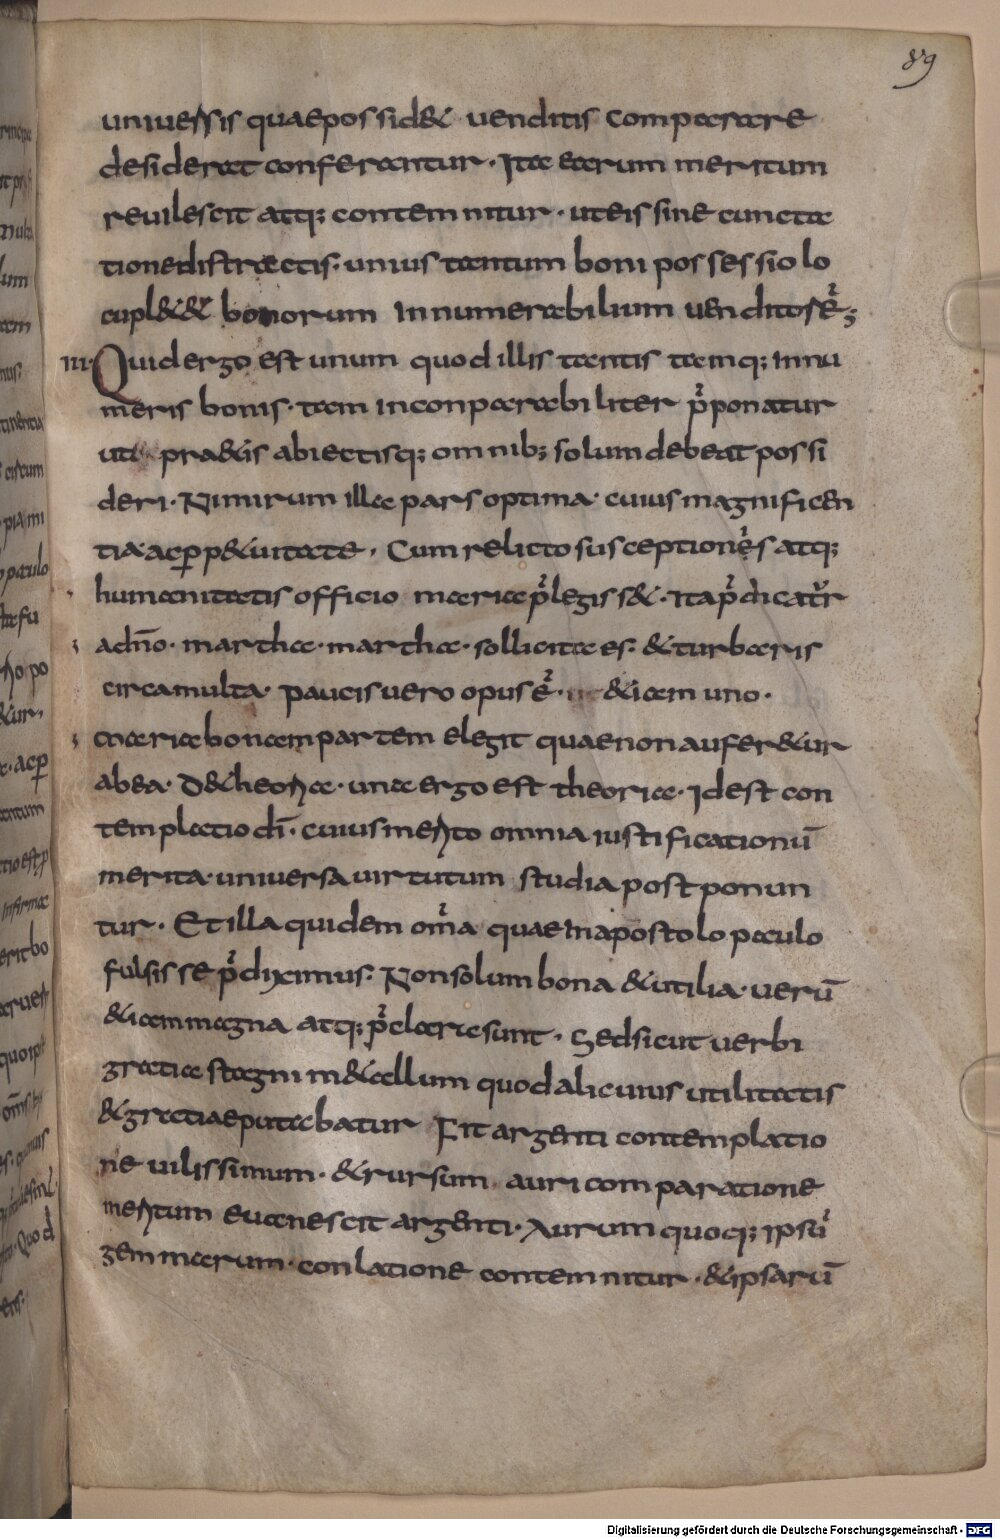 89
uniuersis quae possid& uenditis comparare
desiderat conferantur. Ita earum meritum
reuilescit atq; contemnitur. ut eis sine cuncta
tione distractis. unius tantum boni possessio lo
cupl&& bonorum innumerabilium uenditos ē;
III. Quid ergo est unum quod illis tantis tamq; innu
meris bonis. tam inconparabiliter p̄ponatur
ut pra&is abiectisq; omnib; solum debeat possi
deri. Nimirum illa pars optima. cuius magnificen
tia ac perp&uitate. Cum relicto susceptionis atq;
humanitatis officio maria p̄legiss&. Ita p̄dicatur
a dn̄o. martha. martha. sollicita es. & turbaris
circa multa. paucis uero opus ē. & iam uno.
Maria bonam partem elegit quae non aufer&ur
ab ea. D& heoria. una ergo est theoria. Id est con
templatio dī. cuius merito omnia iustificationū
merita. uniuersa uirtutum studia postponun
tur. Et illa quidem om̄a quae in apostolo paulo
fulsisse p̄diximus. Non solum bona & utilia. uerū
& iam magna atq; p̄clara esunt. Sed sicut uerbi
gratia stagni m&allum quod alicuius utilitatis
& gratiae putabatur Fit argenti contemplatio
ne uilissimum. & rursum auri comparatione
meritum euanescit argenti. Aurum quoq; ipsū
gemmarum. conlatione contemnitur. & ipsarū
Digitalisierung gefördert durch die Deutsche Forschungsgemeinschaft - DFG